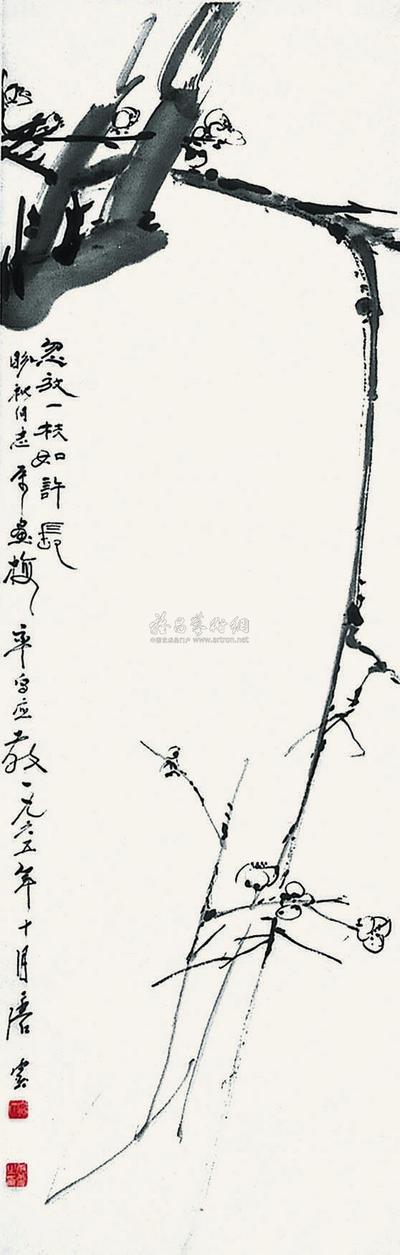 忽放一枝如許長
秋同志属畫梅率写应教一九六五年十月唐雲
雅昌藝術網
www.artron.net